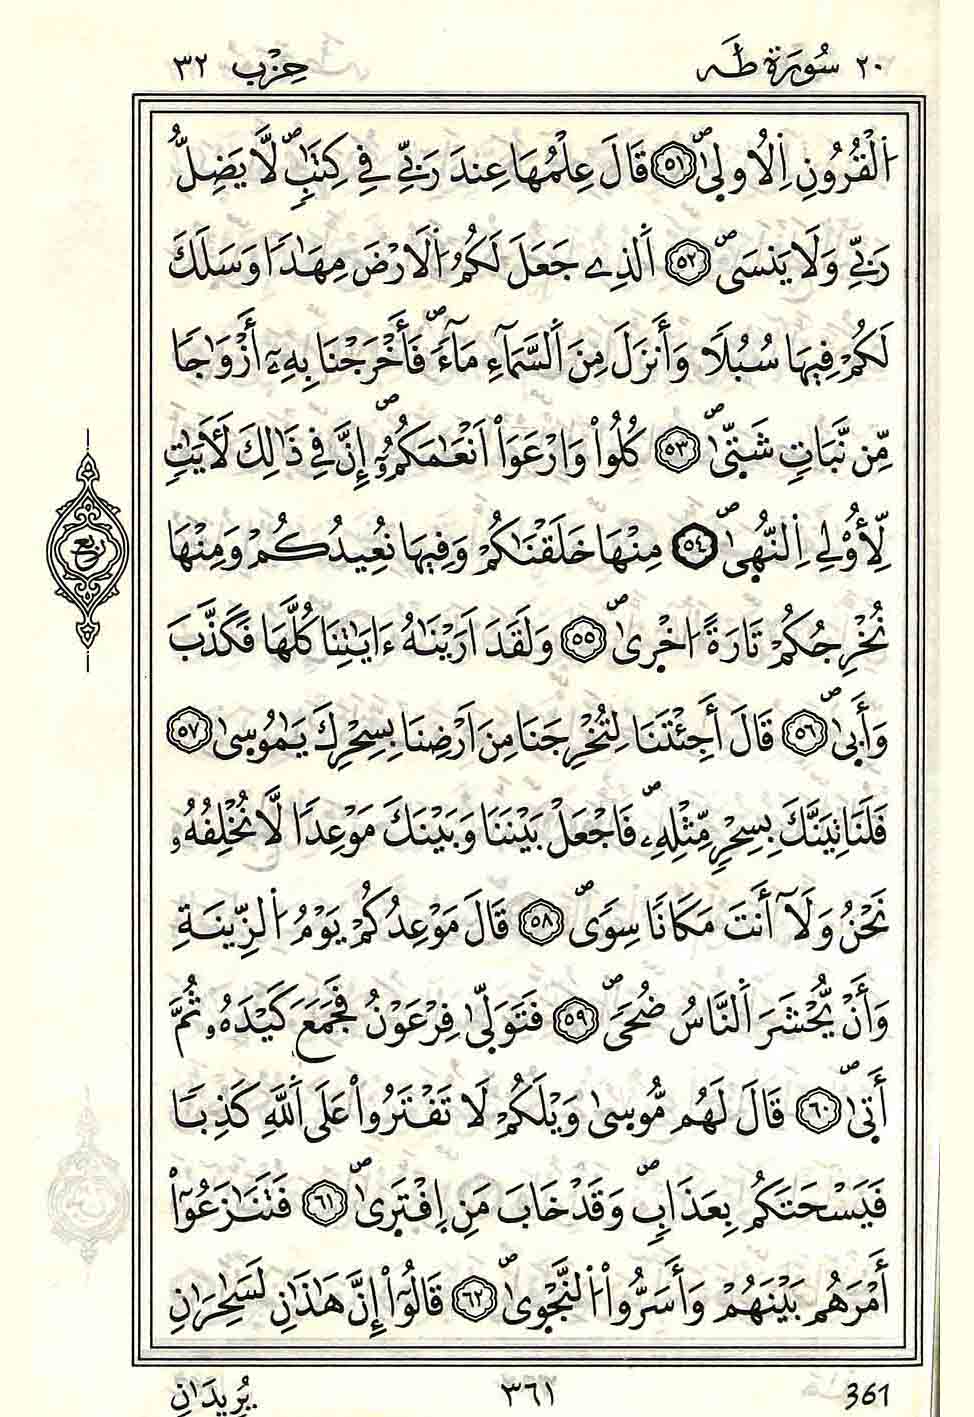 ٢٠ سُورَةُ طَهَ حِزْب ٣٢
اَ۬لْقُرُونِ اِ۬لُاولىٰۖ ٥١ قَالَ عِلْمُهَا عِندَ رَبِّے فِے كِتَٰبٖۖ لَّا يَضِلُّ
رَبِّے وَلَا يَنسَىۖ ٥٢ اَ۬لذِے جَعَلَ لَكُمُ اُ۬لَارْضَ مِهَٰداٗ وَسَلَكَ
لَكُمْ فِيهَا سُبُلاٗ وَأَنزَلَ مِنَ اَ۬لسَّمَآءِ مَآءٗۖ فَأَخْرَجْنَا بِهِۦٓ أَزْوَٰجاٗ
مِّن نَّبَاتٖ شَتّىٰۖ ٥٣ كُلُواْ وَارْعَوَاْ اَنْعَٰمَكُمُۥٓۖ إِنَّ فِے ذَٰلِكَ لَأٓيَٰتٖ
لِّأُوْلِے اِ۬لنُّهىٰۖ ٥٤ مِنْهَا خَلَقْنَٰكُمْ وَفِيهَا نُعِيدُكُمْ وَمِنْهَا
نُخْرِجُكُمْ تَارَةً اُخْرىٰۖ ٥٥ وَلَقَدَ اَرَيْنَٰهُ ءَايَٰتِنَا كُلَّهَا فَكَذَّبَ
وَأَبىٰۖ ٥٦ قَالَ أَجِئْتَنَا لِتُخْرِجَنَا مِنَ اَرْضِنَا بِسِحْرِكَ يَٰمُوسىٰ ٥٧
فَلَنَاتِيَنَّكَ بِسِحْرٖ مِّثْلِهِۦۖ فَاجْعَلْ بَيْنَنَا وَبَيْنَكَ مَوْعِداٗ لَّا نُخْلِفُهُۥ
نَحْنُ وَلَآ أَنتَ مَكَاناٗ سِوىٗۖ ٥٨ قَالَ مَوْعِدُكُمْ يَوْمُ اُ۬لزِّينَةِ
وَأَنْ يُّحْشَرَ اَ۬لنَّاسُ ضُحىٗۖ ٥٩ فَتَوَلّىٰ فِرْعَوْنُ فَجَمَعَ كَيْدَهُۥ ثُمَّ
أَتىٰۖ ٦٠ قَالَ لَهُم مُّوسىٰ وَيْلَكُمْ لَا تَفْتَرُواْ عَلَى اَ۬للَّهِ كَذِباٗ
فَيَسْحَتَكُم بِعَذَابٖۖ وَقَدْ خَابَ مَنِ اِ۪فْتَرىٰۖ ٦١ فَتَنَٰزَعُوٓاْ
أَمْرَهُم بَيْنَهُمْ وَأَسَرُّواْ اُ۬لنَّجْوىٰۖ ٦٢ قَالُوٓاْ إِنَّ هَٰذَٰنِ لَسَٰحِرَٰنِ
ربع
يُرِيدَٰنِ ٣٦١ 361